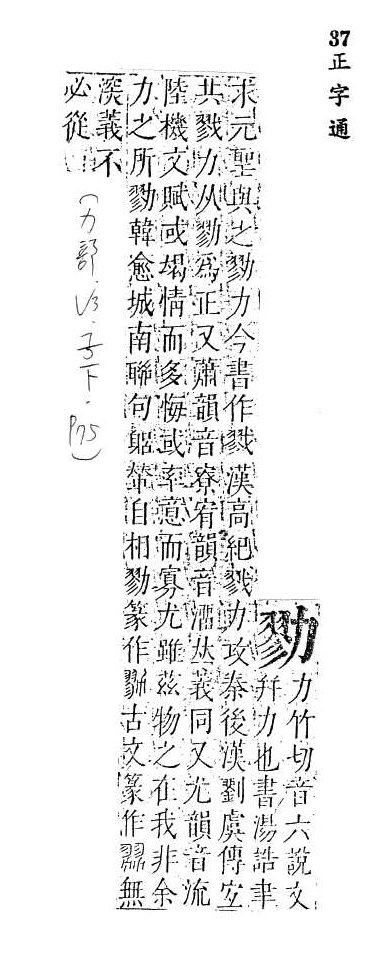 37 正字通
勠
力竹切音六說文
幷力也書湯誥聿
求元聖與之勠力今書作戮漢高紀戮力攻秦後漢劉虞傳宐
共戮力从勠爲正又蕭韻音寮宥韻音溜𠀤義同又尤韻音流
陸機文賦或竭情而多悔或率意而寡尤雖茲物之在我非余
力之所勠韓愈城南聯句自相勠篆作勠古文篆作無
深義不
必從
(力部.V3.子下.P75)